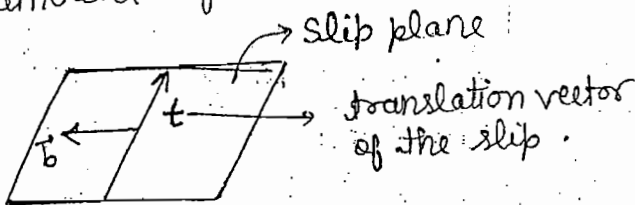 slip plane
t
translation vector
b
of the slip.